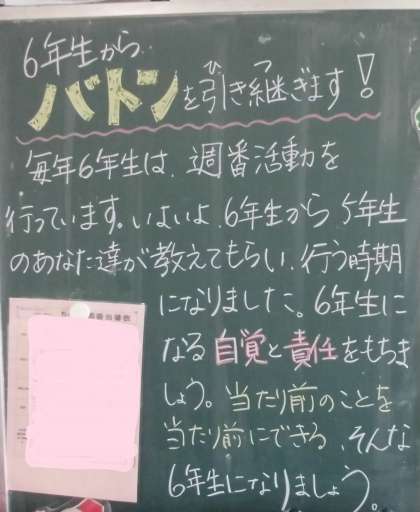 6年生から
バトンを引き継ぎます!
毎年6年生は、週番活動を
行っています。いよいよ、6年生から5年生
のあなた達が教えてもらい、行う時期
になりました。6年生に
なる自覚と責任をもちま
しょう。当たり前のことを
当たり前にできる、そんな
6年生になりましょう。